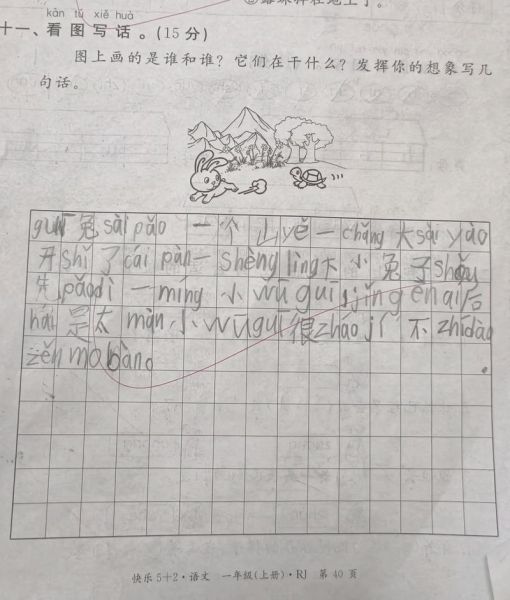 kàn tú xiě huà
十一、看图写话。(15分)
图上画的是谁和谁？它们在干什么？发挥你的想象写几
句话。
guī 兔 sài pǎo 一个山 yě 一 chǎng 大 sài yào
开 shǐ 了 cái pàn 一 shēng lìng 下小兔子 shǒu
先 pǎo dì 一 míng 小 wū guī
hái 是太 màn 小 wū guī 很 zháo jí 不 zhī dào
zěn mo bàn
快乐5+2·语文 一年级(上册)·RJ 第40页